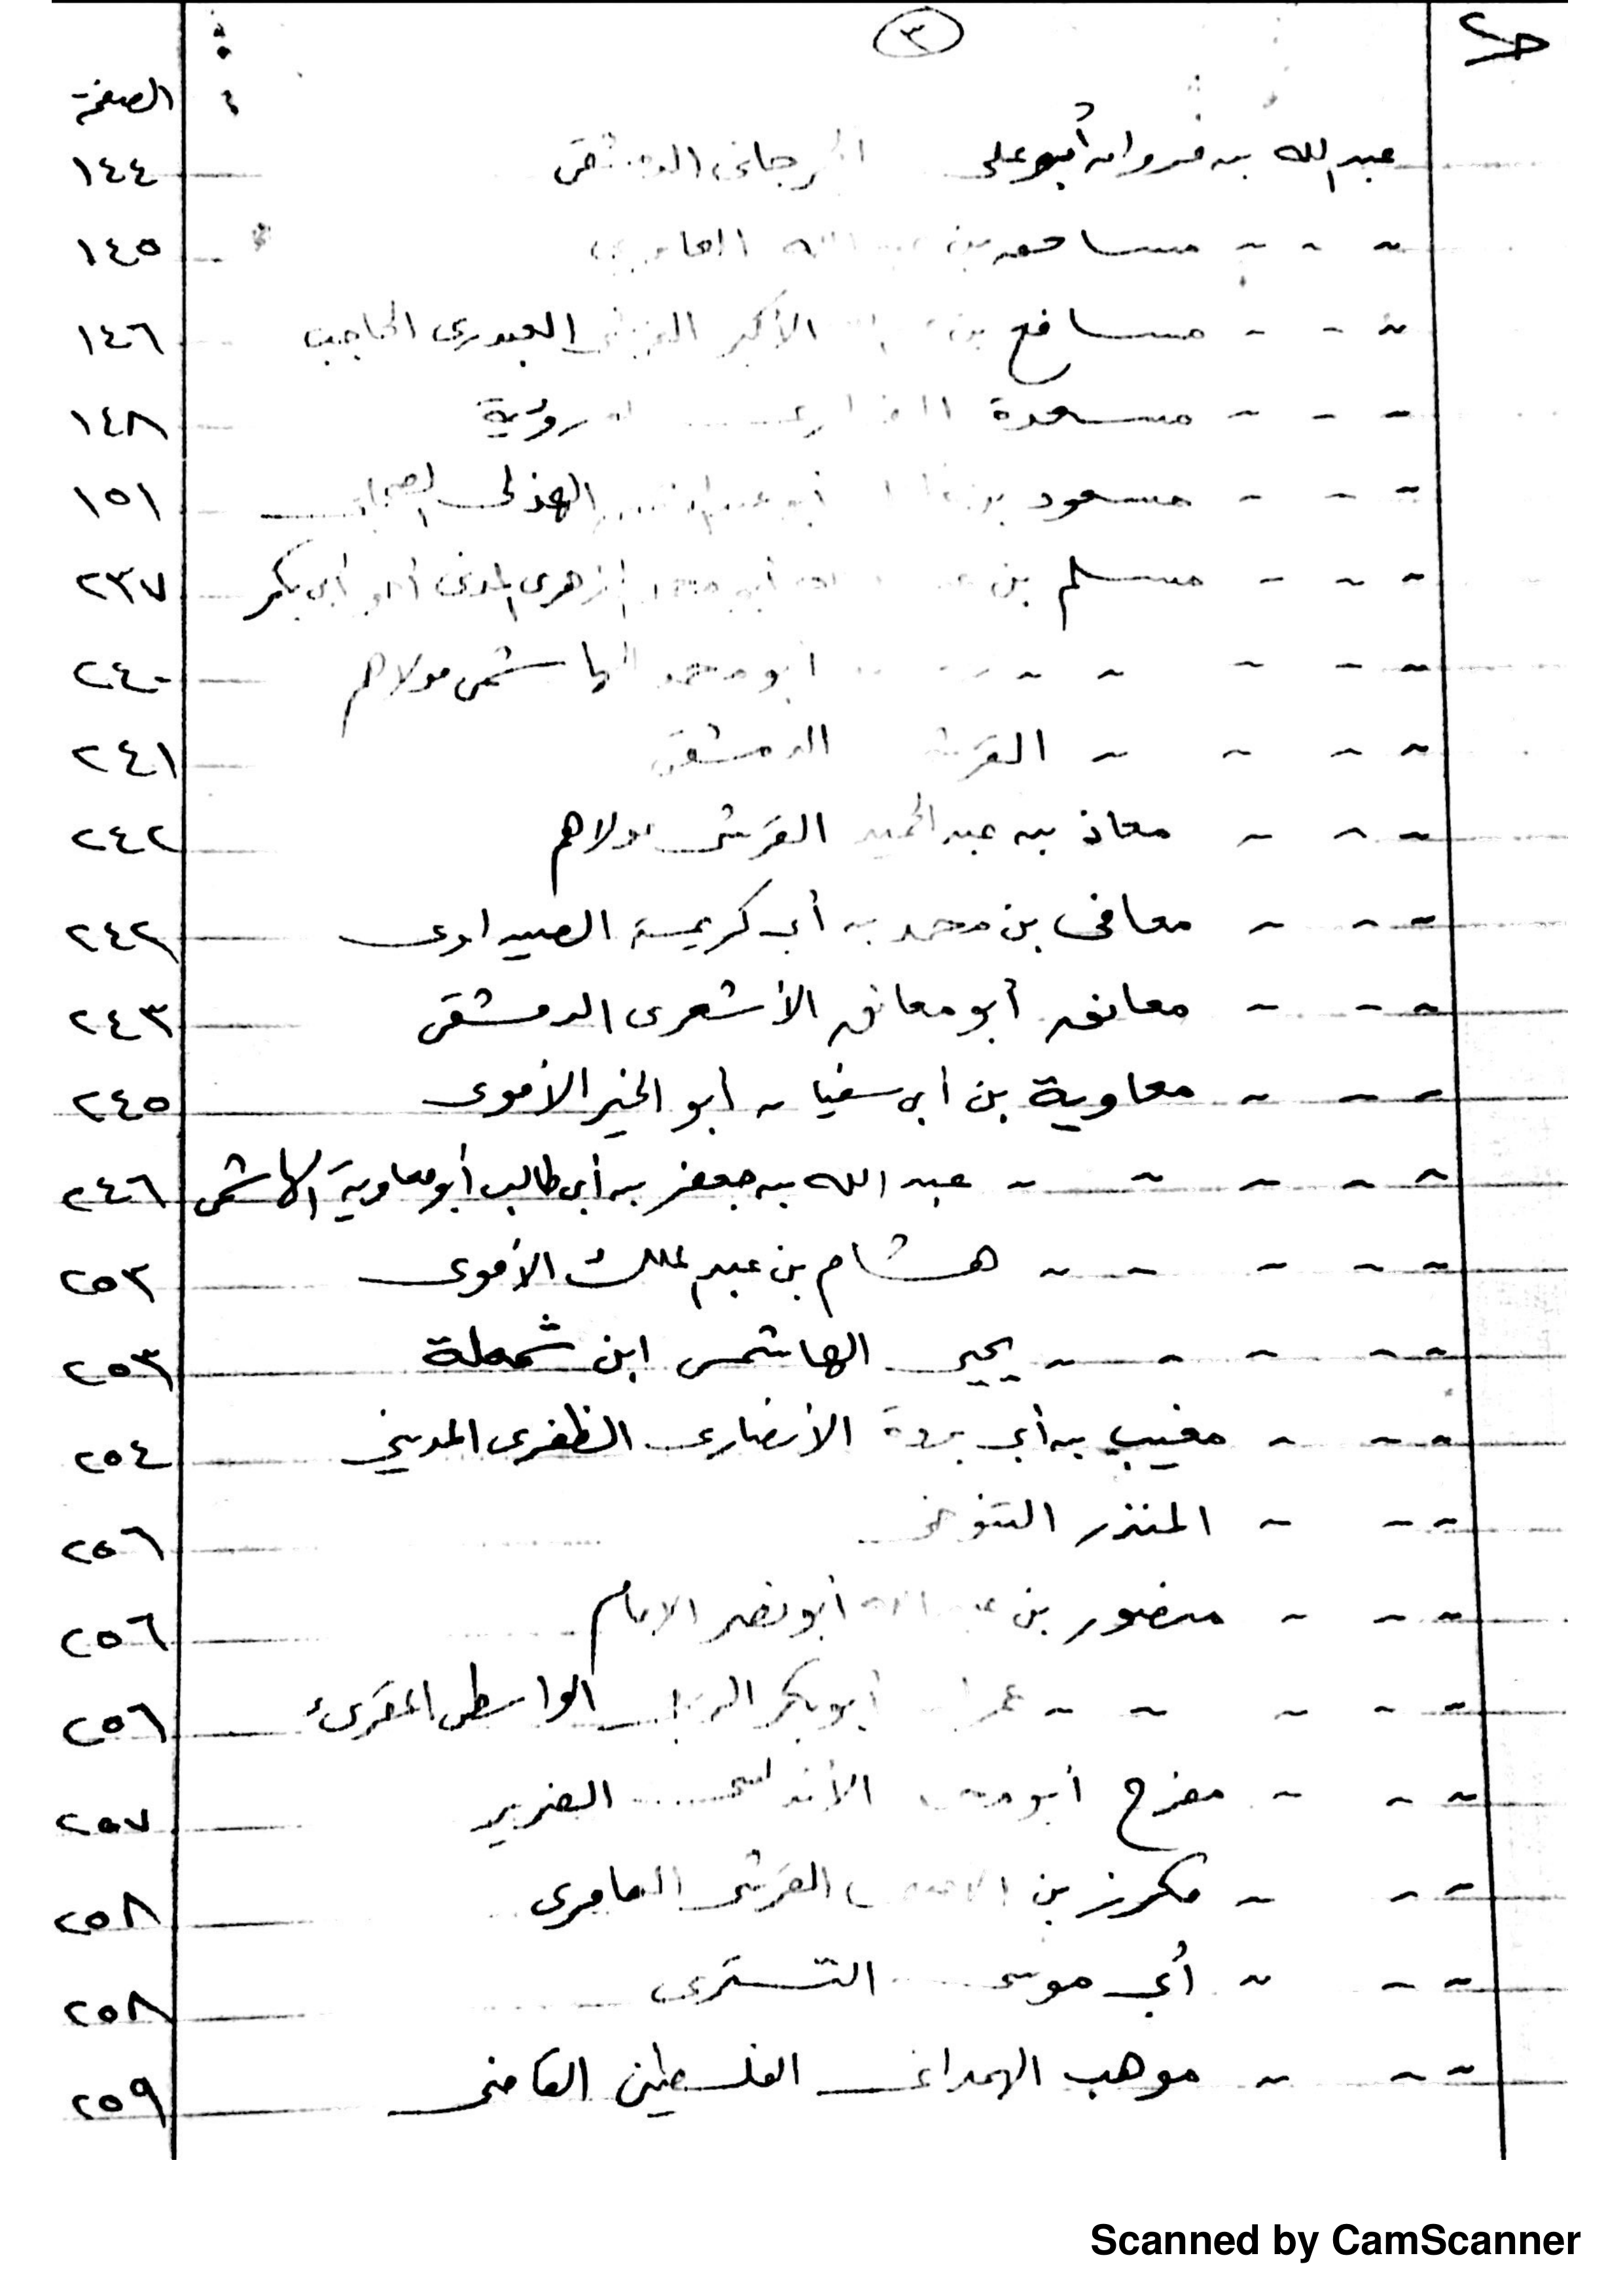 ٣
الصفحة
عبد الله بن مروان أبو على الجرجانى الدمشقى ١٤٤
~ ~ ~ مسافع بن الله العامرى ١٤٥
~ ~ ~ مسافع بن الأكبر العبدرى الحاجب ١٤٦
~ ~ ~ مسعدة الفزارى له رؤية ١٤٨
~ ~ ~ مسعود بن أبو عبد الرحمن الهذلى الصحابى ١٥١
~ ~ ~ مسلم بن أبو محمد الزهرى المدنى أخو أبى بكر ٢٣٧
~ ~ ~ ~ ~ أبو محمد الهاشمى مولاهم ٢٤٠
~ ~ ~ ~ القرشى الدمشقى ٢٤١
~ ~ ~ معاذ بن عبد الحميد القرشى مولاهم ٢٤٢
~ ~ ~ معافى بن محمد بن أبى كريمة الصيداوى ٢٤٢
~ ~ ~ معانق أبو معانق الأشعرى الدمشقى ٢٤٣
~ ~ ~ معاوية بن أبى سفيان أبو الخير الأموى ٢٤٥
~ ~ ~ ~ ~ عبد الله بن جعفر بن أبى طالب أبو معاوية الهاشمى ٢٤٦
~ ~ ~ ~ ~ هشام بن عبد الملك الأموى ٢٥٣
~ ~ ~ ~ ~ يحيى الهاشمى ابن شمعلة ٢٥٣
~ ~ ~ مغيب بن أبى بردة الأنصارى الظفرى المدينى ٢٥٤
~ ~ ~ المنذر التنوخى ٢٥٦
~ ~ ~ منصور بن أبو نصر الإمام ٢٥٦
~ ~ ~ ~ ~ عمران أبو بكر الواسطى المقرئ ٢٥٦
~ ~ ~ مفرح أبو محمد الأندلسى الضرير ٢٥٧
~ ~ ~ مكرز بن القرشى العامرى ٢٥٨
~ ~ ~ أبى موسى التسترى ٢٥٨
~ ~ ~ موهب الهمدانى الفلسطينى القاضى ٢٥٩
Scanned by CamScanner